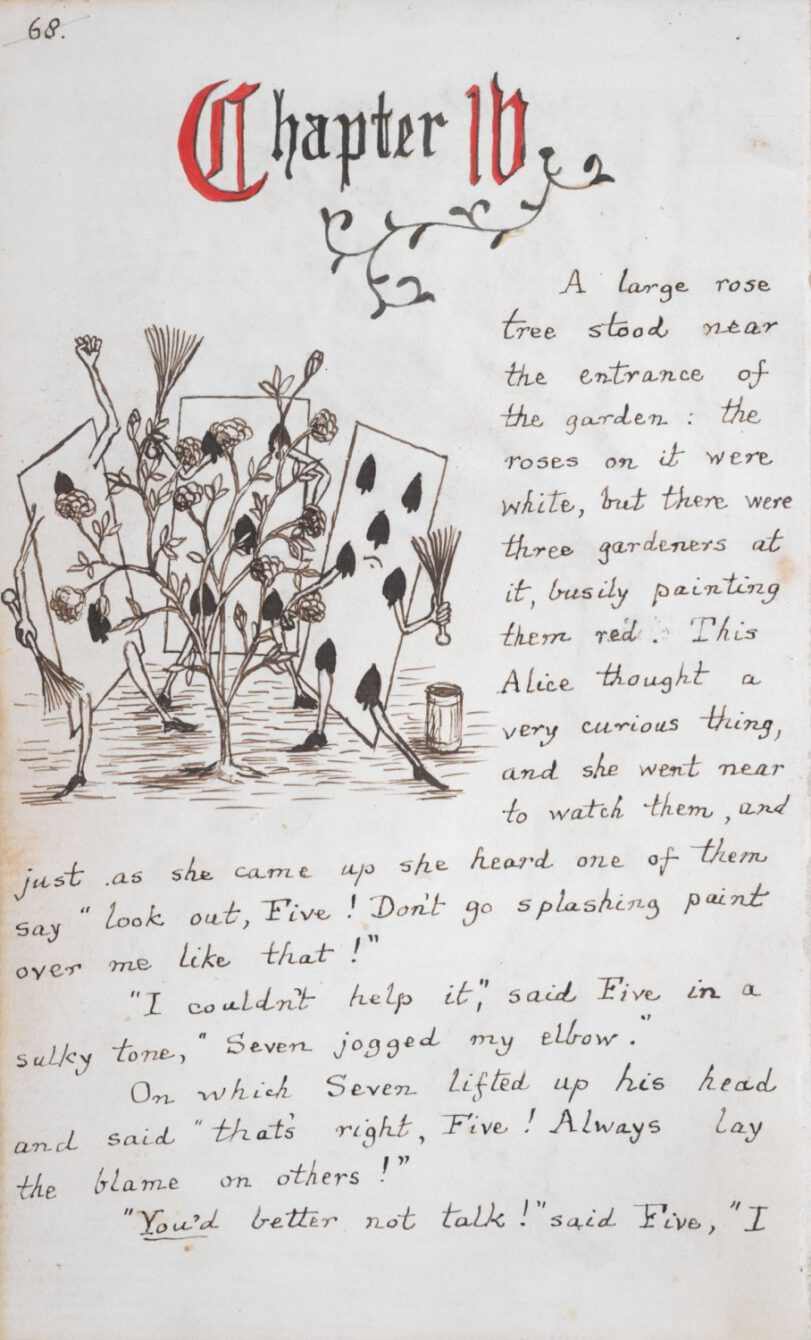 68.
Chapter IV
A large rose
tree stood near
the entrance of
the garden : the
roses on it were
white, but there were
three gardeners at
it, busily painting
them red. This
Alice thought a
very curious thing,
and she went near
to watch them, and
just as she came up she heard one of them
say "look out, Five! Don't go splashing paint
over me like that!"
"I couldn't help it," said Five in a
sulky tone, "Seven jogged my elbow."
On which Seven lifted up his head
and said "that's right, Five! Always lay
the blame on others!"
"You'd better not talk!" said Five, "I